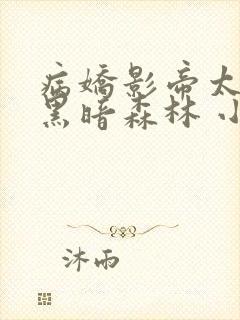 病嬌影帝太
黑暗森林 小
沐雨